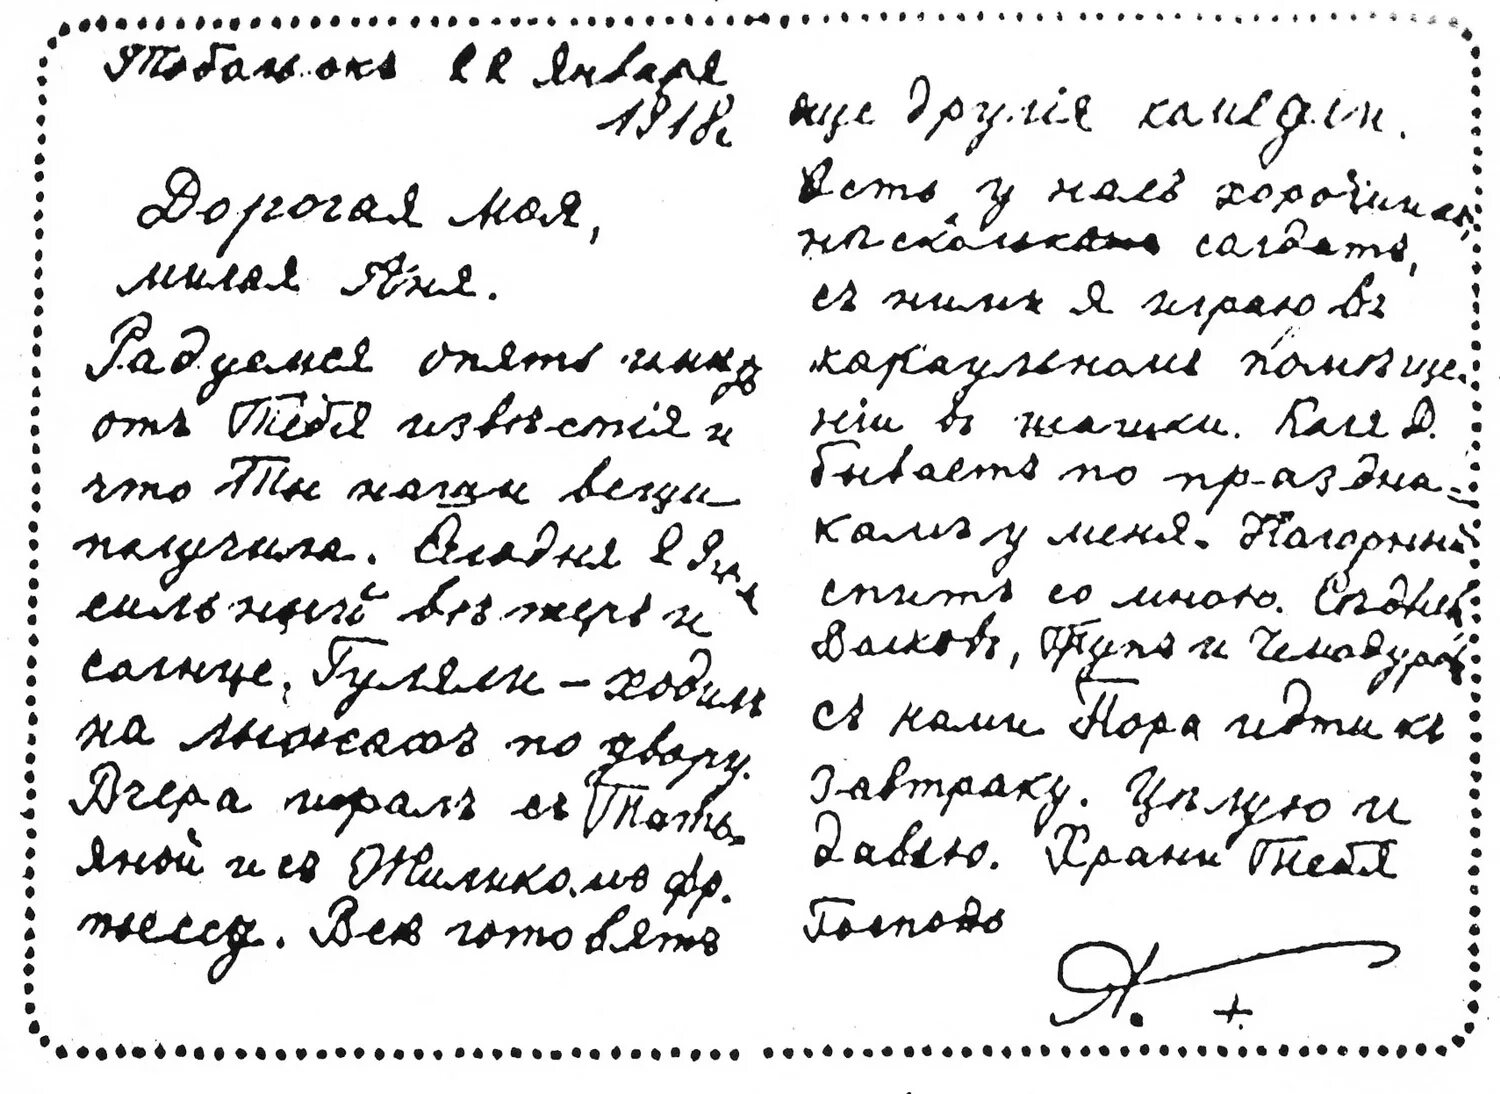 Тобольскъ 22 января
1918г.
Дорогая моя,
милая Аня.
Радуемся опять имѣ
отъ Тебя извѣстія и
что Ты наши вещи
получила. Сегодня
сильный вѣтеръ и
солнце. Гуляли – ходилъ
на лыжахъ по двору.
Вчера игралъ съ Тать-
яной и съ Жиликомъ фр.
пьессу. Всѣ готовятъ
еще другія комедіи.
Есть у насъ хорошихъ
нѣсколько солдатъ,
съ ними я играю въ
караульномъ помѣще-
ніи въ шашки. Коля Д.
бываетъ по праздни-
камъ у меня. Нагорный
спитъ со мною.
Волковъ, Трупъ и Чемодуровъ
съ нами Пора идти къ
завтраку. Цѣлую и
давлю. Храни Тебя
Господь
А. +